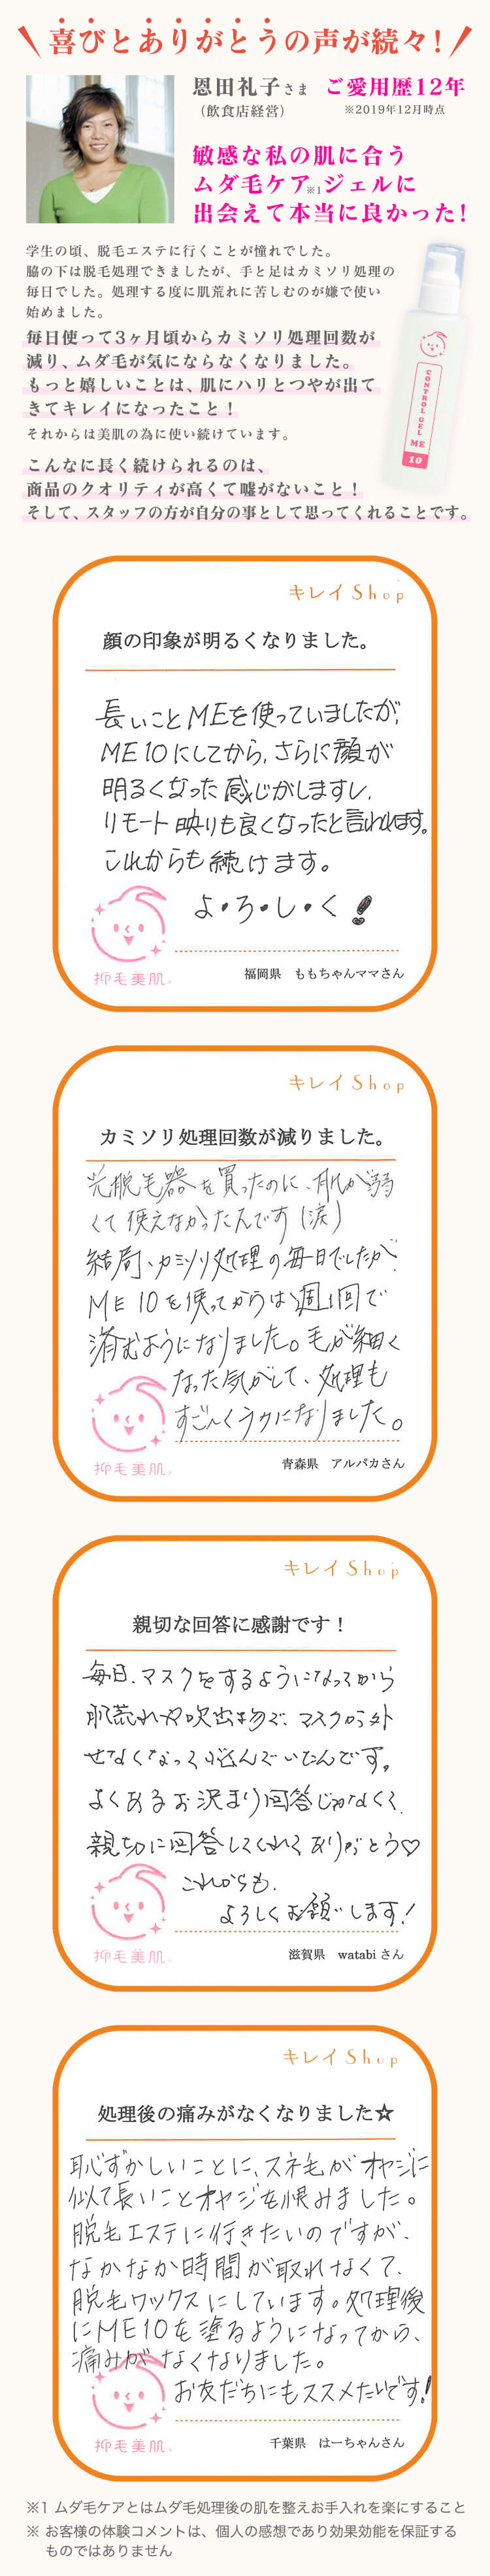 喜びとありがとうの声が続々!
恩田礼子さま
(飲食店経営)
ご愛用歴12年
※2019年12月時点
敏感な私の肌に合う
ムダ毛ケア※1ジェルに
出会えて本当に良かった!
学生の頃、脱毛エステに行くことが憧れでした。
脇の下は脱毛処理できましたが、手と足はカミソリ処理の
毎日でした。処理する度に肌荒れに苦しむのが嫌で使い
始めました。
毎日使って3ヶ月頃からカミソリ処理回数が
減り、ムダ毛が気にならなくなりました。
もっと嬉しいことは、肌にハリとつやが出て
きてキレイになったこと!
それからは美肌の為に使い続けています。
こんなに長く続けられるのは、
商品のクオリティが高くて嘘がないこと!
そして、スタッフの方が自分の事として思ってくれることです。
CONTROL GEL
ME
10
キレイShop
顔の印象が明るくなりました。
長いことMEを使っていましたが、
ME10にしてから、さらに顔が
明るくなった感じがしますし、
リモート映りも良くなったと言われます。
これからも続けます。
よ・ろ・し・く!
抑毛美肌。
福岡県 ももちゃんママさん
キレイShop
カミソリ処理回数が減りました。
光脱毛器を買ったのに、肌が弱
くて使えなかったんです(涙)
結局、カミソリ処理の毎日でしたが、
ME10を使ってからは週1回で
済むようになりました。毛が細く
なった気がして、処理も
すごくラクになりました。
抑毛美肌。
青森県 アルパカさん
キレイShop
親切な回答に感謝です!
毎日、マスクをするようになってから
肌荒れや吹出物で、マスクから外
せなくなって悩んでいたんです。
よくあるお決まり回答じゃなくて、
親切に回答してくれてありがとう♡
これからも、
よろしくお願いします!
抑毛美肌。
滋賀県 watabiさん
キレイShop
処理後の痛みがなくなりました☆
恥ずかしいことに、スネ毛がオヤジに
似て長いことオヤジを恨みました。
脱毛エステに行きたいのですが、
なかなか時間が取れなくて、
脱毛ワックスにしています。処理後
にME10を塗るようになってから、
痛みがなくなりました。
お友だちにもススメたいです!
抑毛美肌。
千葉県 はーちゃんさん
※1 ムダ毛ケアとはムダ毛処理後の肌を整えお手入れを楽にすること
※ お客様の体験コメントは、個人の感想であり効果効能を保証する
ものではありません